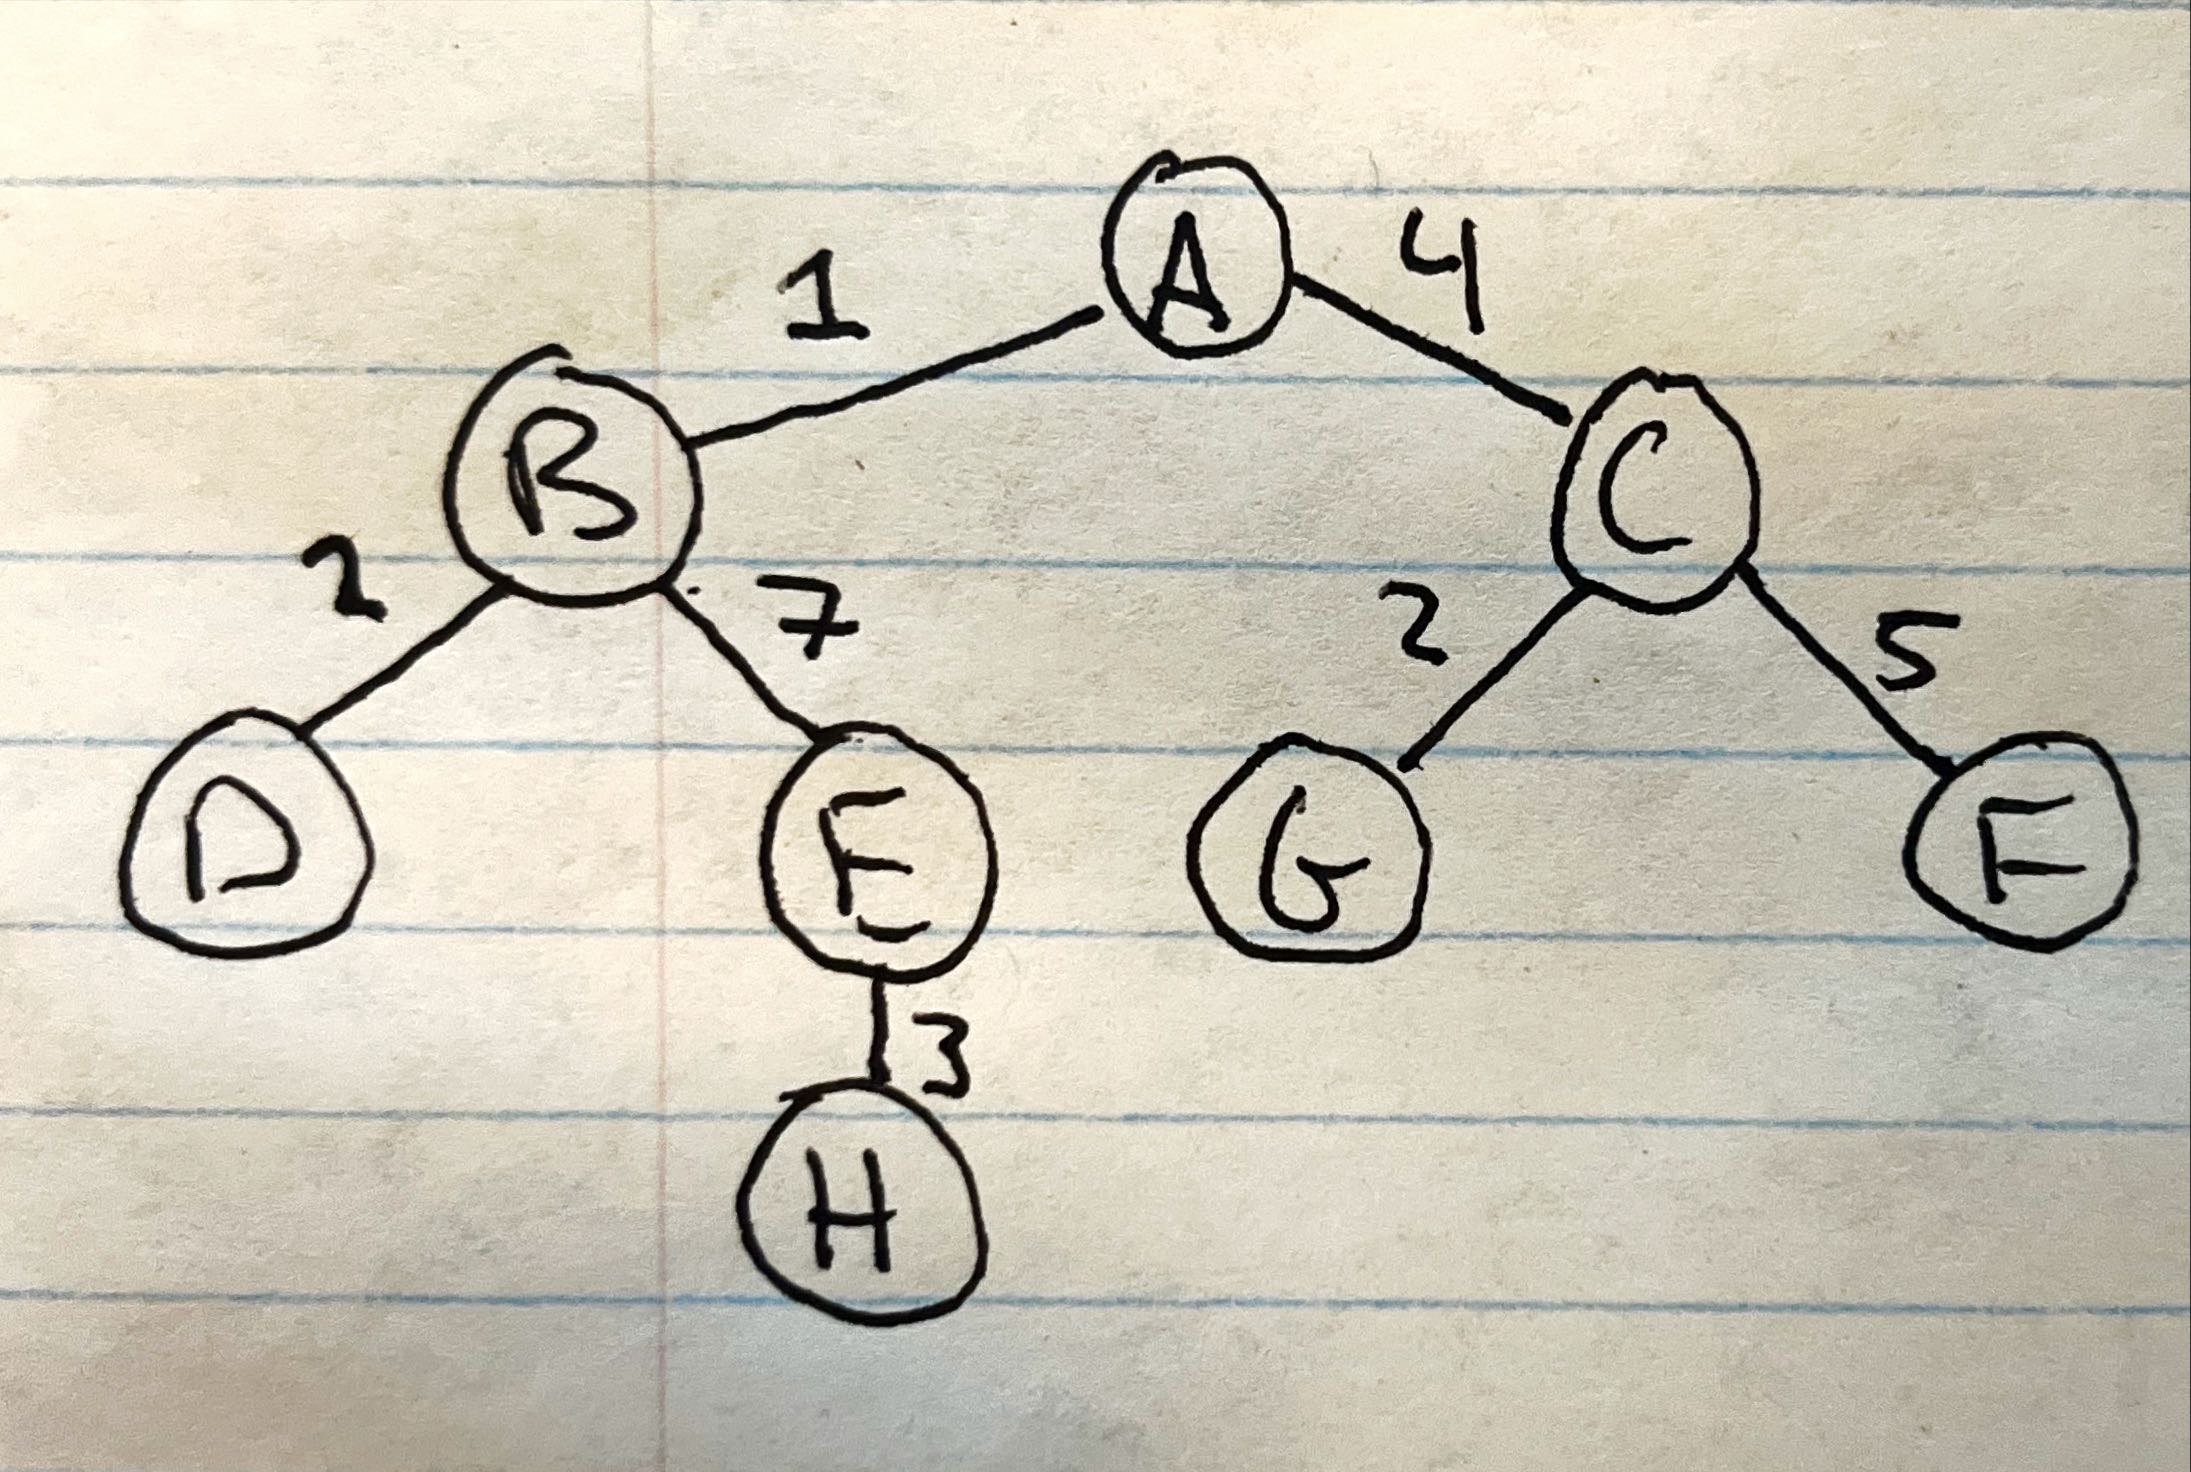 A
1 4
B C
2 7 2 5
D E G F
3
H